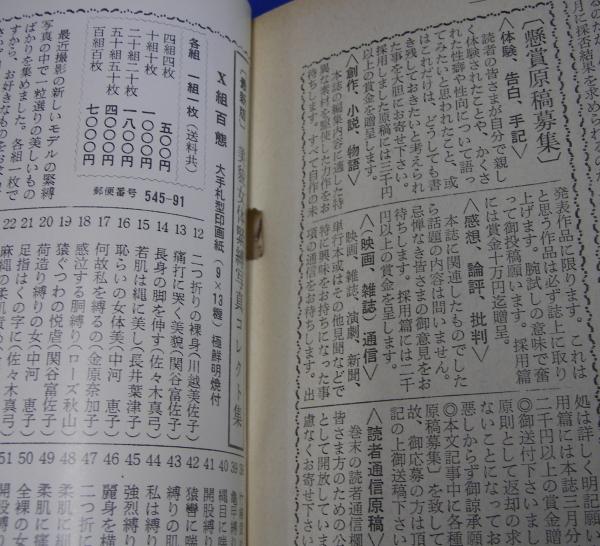 〔懸賞原稿募集〕
月に採否結果を求めら
〈体験 告白 手記〉
読者の皆さまが自分で親し
く体験されたことや、かくさ
れた性癖や性向について語っ
てみたいと思われたこと、或
はこれだけは、どうしても書
き残しておきたいと考えられ
た事を大胆にお寄せ下さい。
採用しました原稿には三千円
以上の賞金を贈呈します。
〈創作、小説、物語〉
本誌の編集内容に適した特
異な素材を駆使した力作をお
待ちします。すべて自作の未
発表作品に限ります。これは
と思う作品は必ず誌上に取り
上げます。腕試しの意味で奮
って御投稿願います。採用篇
には賞金十万円迄贈呈。
〈感想、論評、批判〉
本誌に関連したものでした
ら話題の内容は問いません。
忌憚なき皆さまの御意見をお
待ちします。採用篇には二千
円以上の賞金を呈します。
〈映画、雑誌〉通信〉
映画、雑誌、演劇、新聞、
単行本或はその他見聞などで
特に興味をお持ちになった事
項の通信をお待ちします。出
処は詳しく明記願い
用篇には本誌三月分
二千円以上の賞金贈
◎御送付下さいまし
原則として返却の求
ないことになってお
悪しからず御諒承願
◎本文記事中に各種
原稿募集》を致して
故、御応募の方は頂
記の上御送稿下さい
〈読者通信原稿〉
巻末の読者通信欄
皆さま方のための公
として開放していま
慮なくお寄せ下さい
写真コレクト集
X組百態 大手札型印画紙(9×13糎)極鮮明焼付
各組 一組一枚(送料共)
四組四枚 五〇〇円
十組十枚 一〇〇〇円
二十組二十枚 一八〇〇円
五十組五十枚 四〇〇〇円
百組百枚 七〇〇〇円
郵便番号 545-91
最近撮影の新しいモデルの緊縛
写真の中で一粒選りの美しいもの
ばかりを集めました。各組一枚で
すから、お好きなものをお
12 二つ折りの裸身(川越美佐子)
13 痛打に哭く美貌(関谷富佐子)
14 長身の脚を伸す(佐々木真弓)
15 若肌は縄に美し(長井葉津子)
16 恥らいの女体美(中河 恵子)
17 何故私を縛るの(金原奈加子)
18 感泣する胴縛り(ローズ秋山)
19 猿ぐつわの悦虐(関谷富佐子)
20 荷造り縛りの女(中河 恵子)
21 足指はくの字に(佐々木真弓)
22 麻縄の柔肌
39
40 縄目に喘
41 開股縛り
42 猿轡に喘
43 縛りの肌
44 私は縛り
45 強烈縛り
46 麗身を横
47 二つ折に
48 柔肌に縄
49 柔肌に痛
50 全裸の女
51 開股縛り